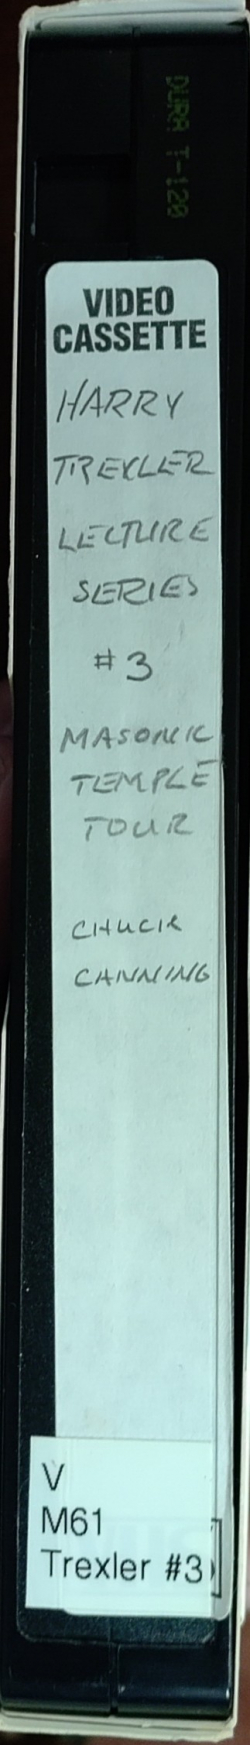 DURA T-120
VIDEO
CASSETTE
HARRY
TREXLER
LECTURE
SERIES
#3
MASONIC
TEMPLE
TOUR
CHUCK
CANNING
V
M61
Trexler #3